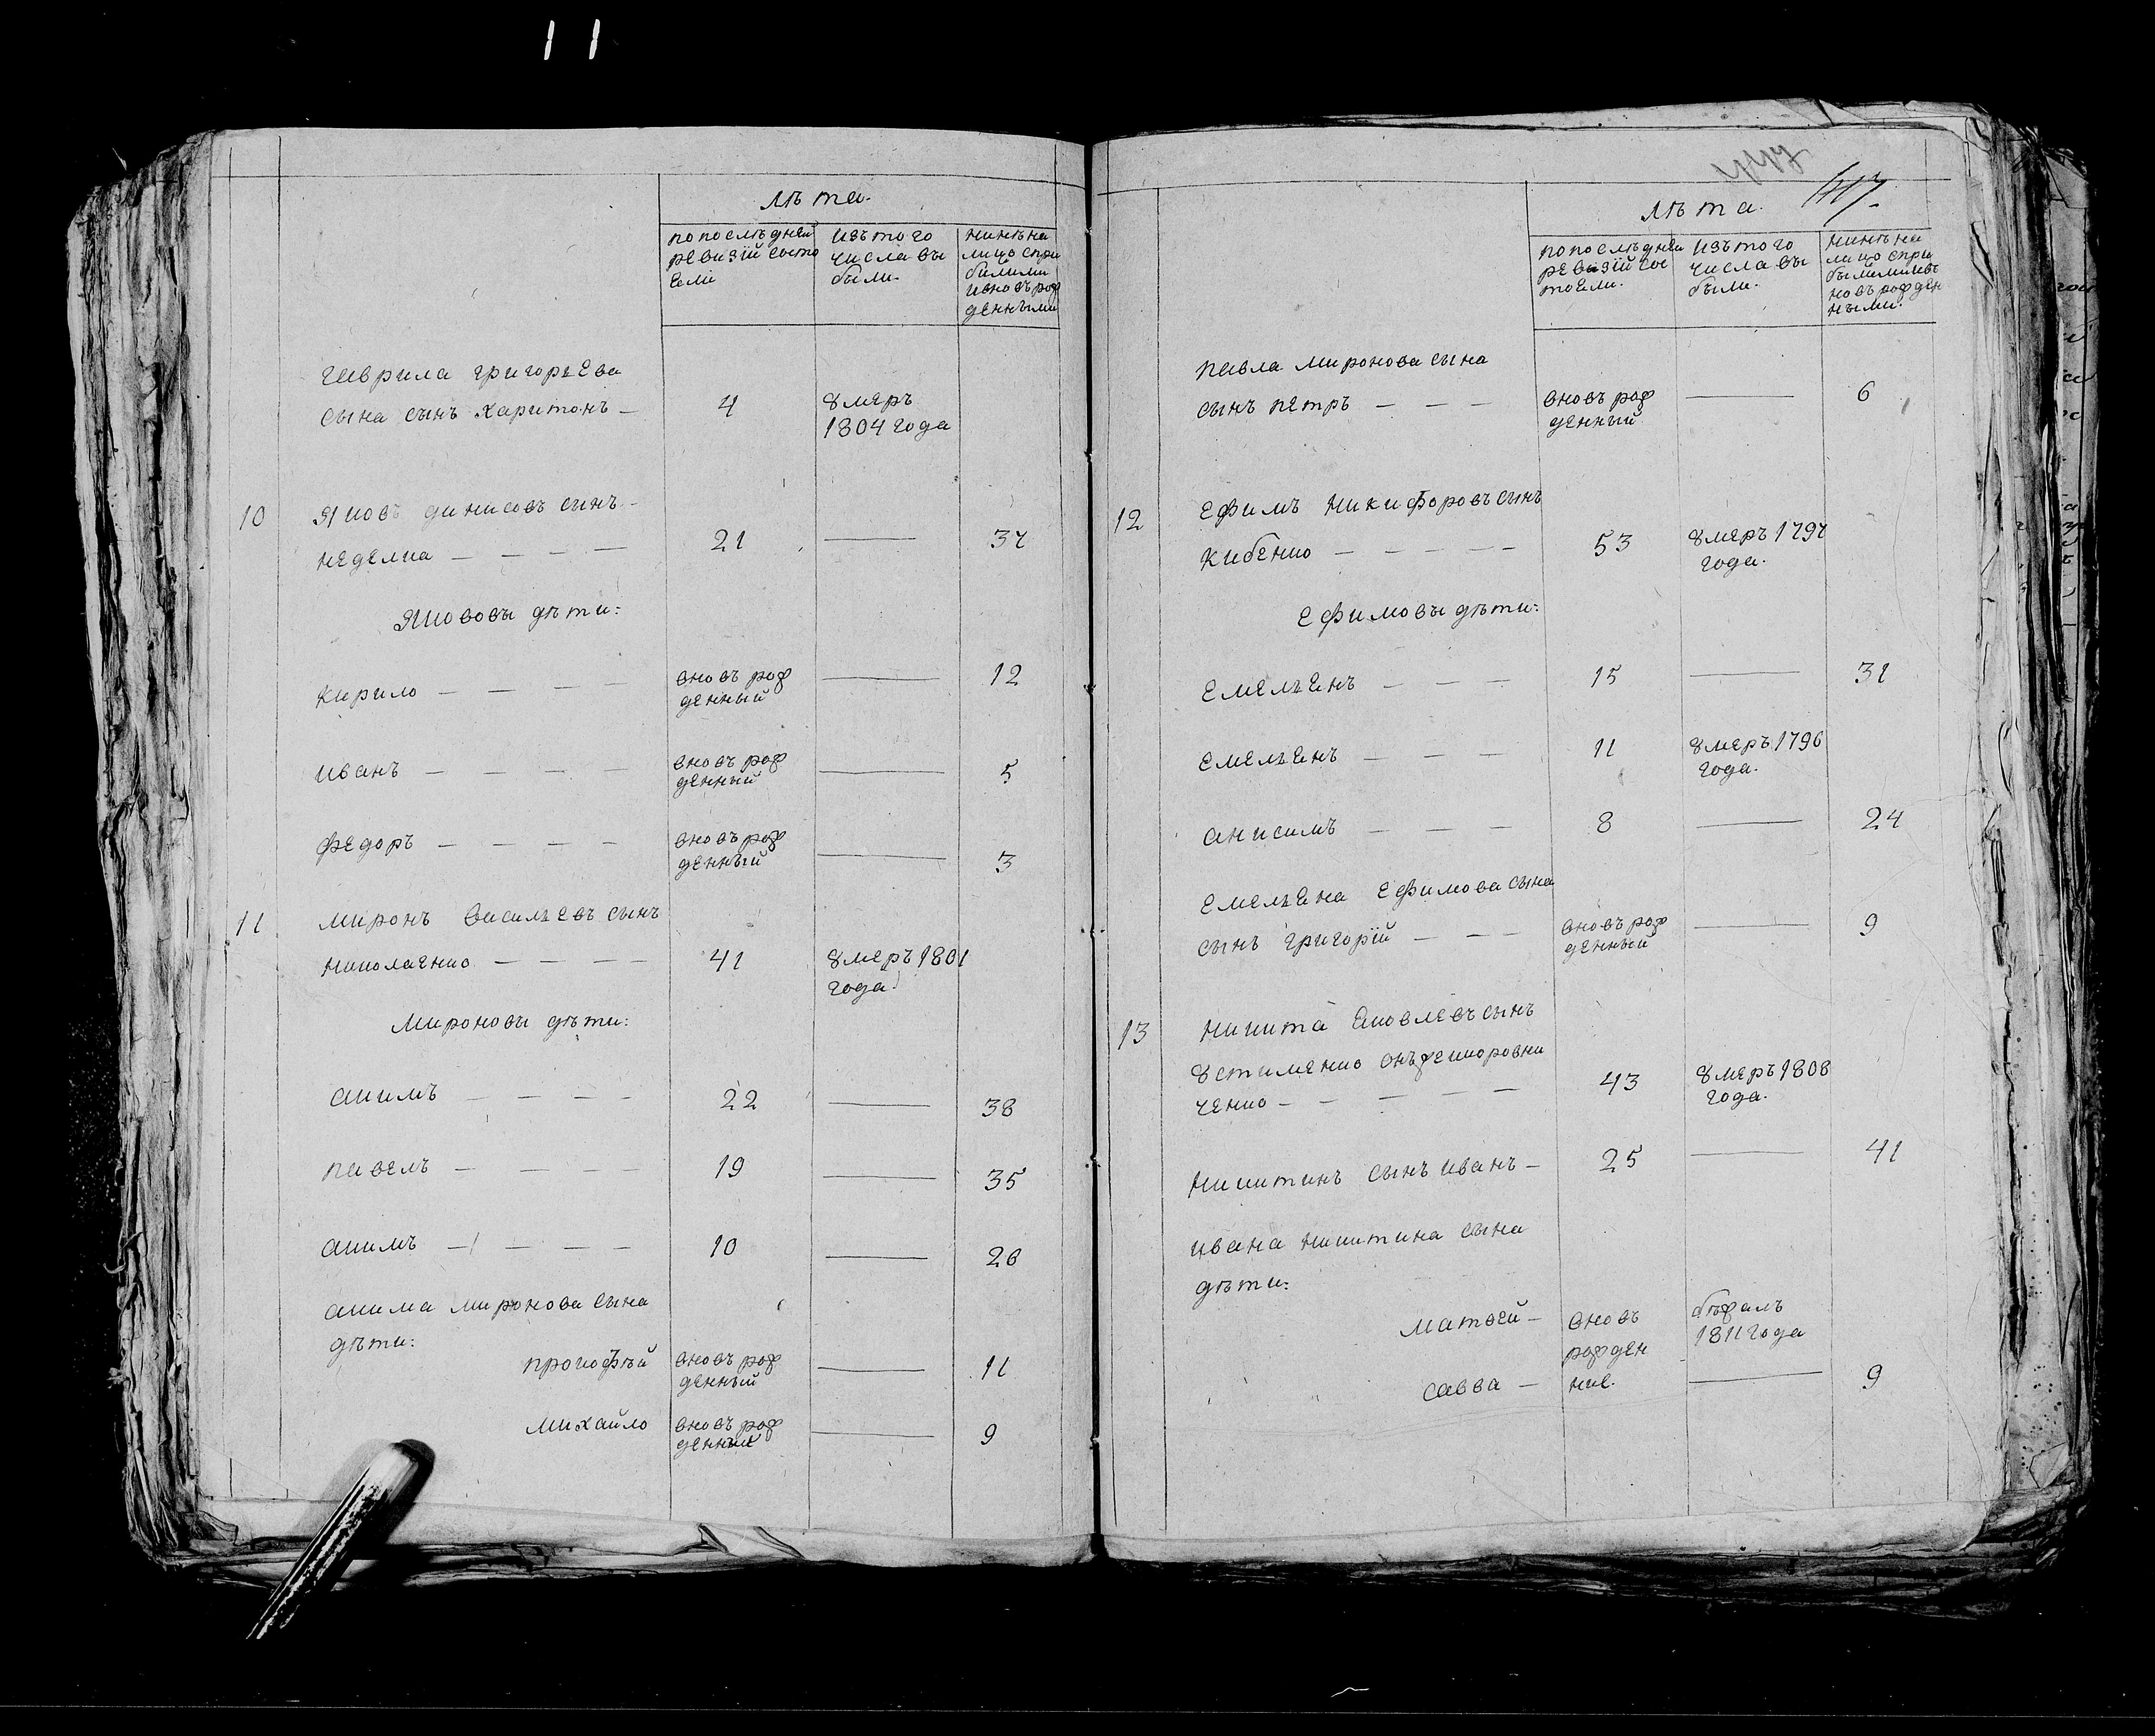 11
лѣта.
по послѣдней
ревизіи состо
яли
изъ того
числа вы
были.
нинѣ на
лицо спри
былими
ивновь рож
денными
гаврила григорьева
сына сынъ харитонъ — 4 умеръ
1804 года
10 яковъ динисовъ сынъ —
неделка — — — — 21 — 37
яковови дѣти:
кирило — — — — вновь рож
денный — 12
иванъ — — — — вновь рож
денный — 5
федоръ — — — — вновь рож
денный — 3
11 миронъ васильевъ сынъ
николаенко — — — — 41 умеръ 1801
года
миронови дѣти:
акимъ — — — — 22 — 38
павелъ — — — — 19 — 35
акимъ — — — — 10 — 26
акима миронова сына
дѣти:
прокофѣй вновь рож
денный — 11
михайло вновь рож
денный — 9
417
лѣта.
по послѣдней
ревизіи сос
тояли.
изъ того
числа вы
были.
нинѣ на
лицо спри
былими ив
новь рожден
ными.
павла миронова сына
сынъ петръ — — — вновь рож
денный — 6
12 ефимъ никифоровъ сынъ
кибенко — — — — — 53 умеръ 1797
года.
ефимовы дѣти:
емельянъ — — — 15 — 31
емельянъ — — — 11 умеръ 1796
года.
анисимъ — — — 8 — 24
емельяна ефимова сына
сынъ григорій — — — вновь рож
денный — 9
13 никита яковлевъ сынъ
устименко онъже
ченко — — — — — 43 умеръ 1808
года.
никитинъ сынъ иванъ — 25 — 41
ивана никитина сына
дѣти:
матвей — вновь
рожден
ніе.
бѣжалъ
1811 года
савва — — 9